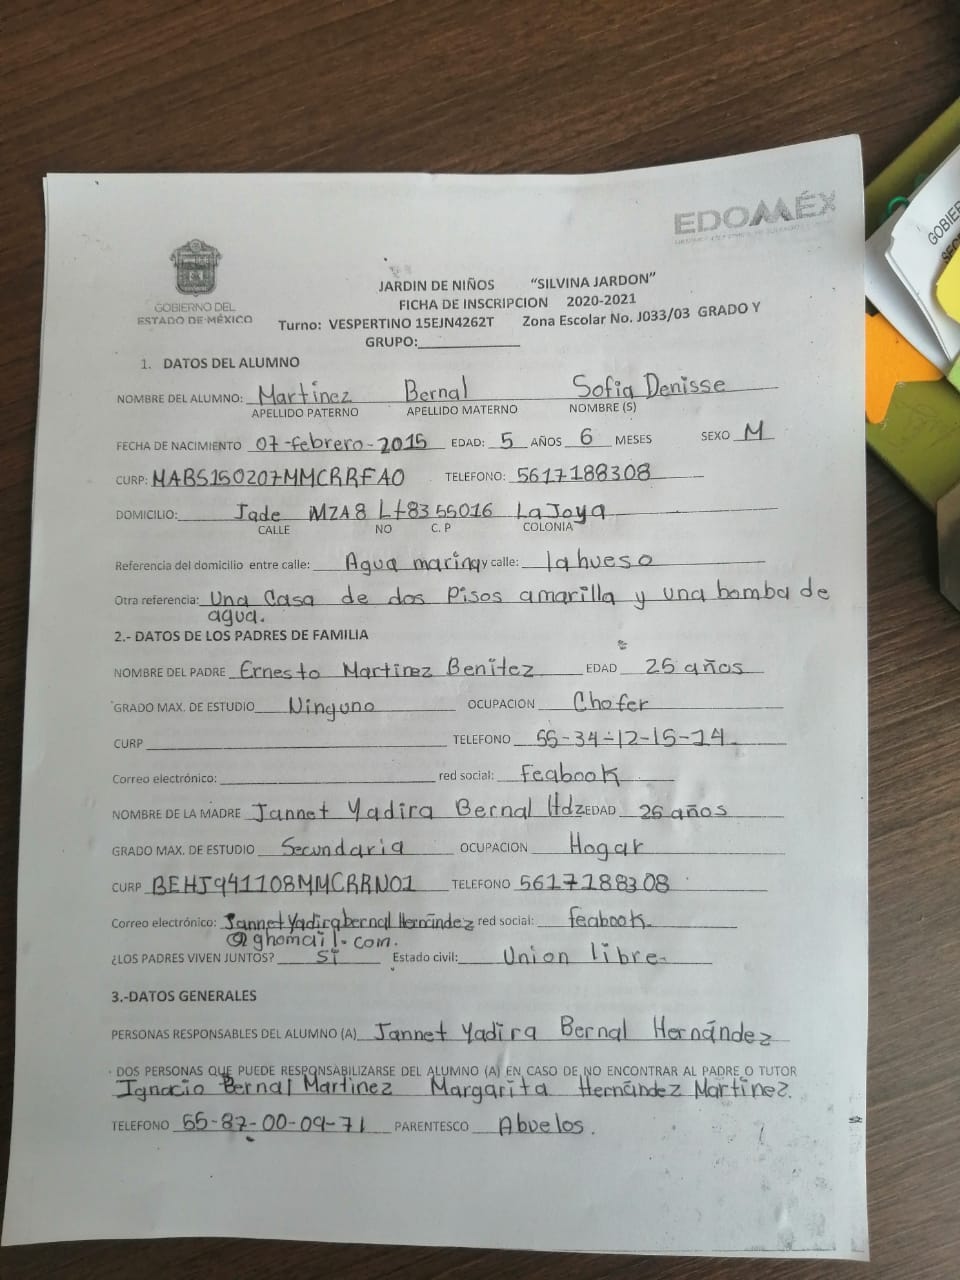 EDOMÉX
GOBIERNO DEL
ESTADO DE MÉXICO
JARDIN DE NIÑOS "SILVINA JARDON"
FICHA DE INSCRIPCION 2020-2021
Turno: VESPERTINO 15EJN4262T Zona Escolar No. J033/03 GRADO Y
GRUPO:
1. DATOS DEL ALUMNO
NOMBRE DEL ALUMNO: Martínez Bernal Sofia Denisse
APELLIDO PATERNO APELLIDO MATERNO NOMBRE (S)
FECHA DE NACIMIENTO 07-febrero-2015 EDAD: 5 AÑOS 6 MESES SEXO M
CURP: MABS150207MMCRRFA0 TELEFONO: 5617188308
DOMICILIO: Jade MZA8 Lt83 55016 La Joya
CALLE NO C. P COLONIA
Referencia del domicilio entre calle: Agua marina y calle: lahueso
Otra referencia: Una Casa de dos Pisos amarilla y una bomba de
agua.
2.- DATOS DE LOS PADRES DE FAMILIA
NOMBRE DEL PADRE Ernesto Martinez Benitez EDAD 25 años
GRADO MAX. DE ESTUDIO Ninguno OCUPACION Chofer
CURP TELEFONO 55-34-12-15-14
Correo electrónico: red social: feabook
NOMBRE DE LA MADRE Jannet Yadira Bernal Hdz EDAD 25 años
GRADO MAX. DE ESTUDIO Secundaria OCUPACION Hogar
CURP BEHJ941108MMCRRN01 TELEFONO 5617188308
Correo electrónico: JannetYadirabernal Hernández red social: feabook
@ghomail.com.
¿LOS PADRES VIVEN JUNTOS? Sí Estado civil: Union libre
3.-DATOS GENERALES
PERSONAS RESPONSABLES DEL ALUMNO (A) Jannet Yadira Bernal Hernández
DOS PERSONAS QUE PUEDE RESPONSABILIZARSE DEL ALUMNO (A) EN CASO DE NO ENCONTRAR AL PADRE O TUTOR
Ignacio Bernal Martinez Margarita Hernández Martinez.
TELEFONO 55-87-00-09-71 PARENTESCO Abuelos.